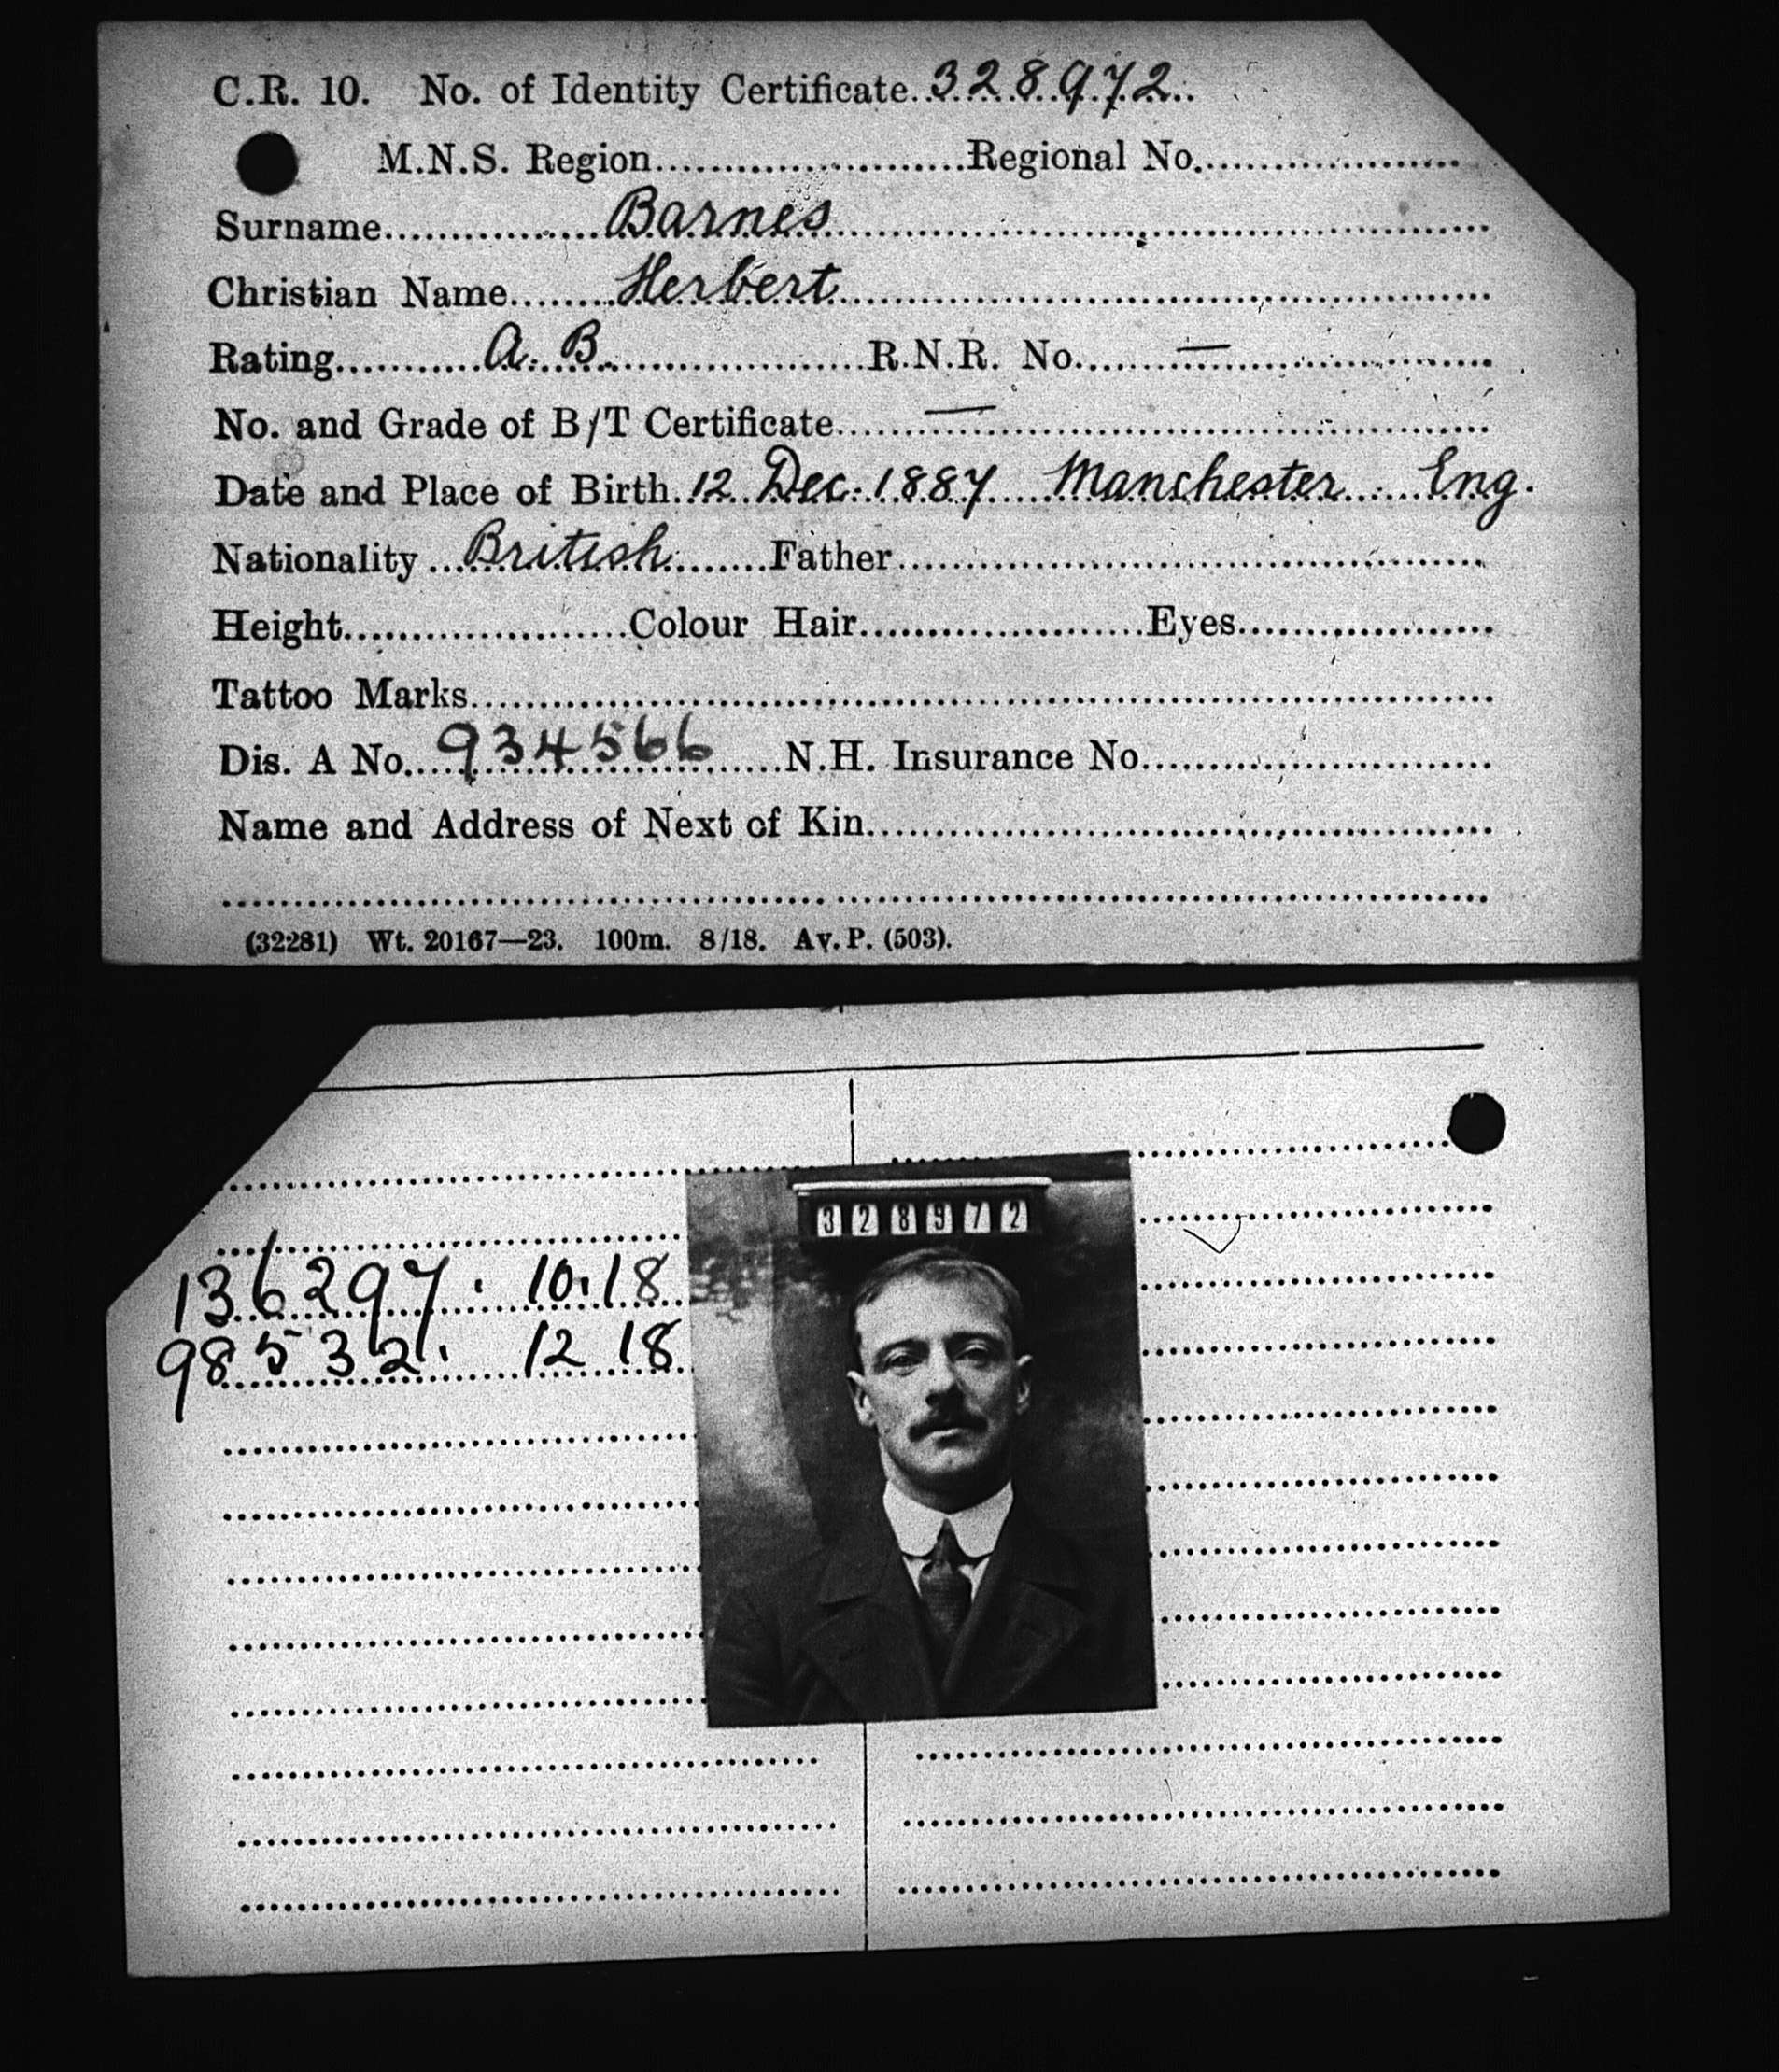 C.R. 10. No. of Identity Certificate 328972
M.N.S. Region Regional No.
Surname Barnes
Christian Name Herbert
Rating A. B. R.N.R. No. —
No. and Grade of B/T Certificate —
Date and Place of Birth 12 Dec. 1887 Manchester Eng.
Nationality British Father
Height Colour Hair Eyes
Tattoo Marks
Dis. A No. 934566 N.H. Insurance No.
Name and Address of Next of Kin
(32281) Wt. 20167—23. 100m. 8/18. Av. P. (503).
328972
136297. 10.18
98532. 12 18